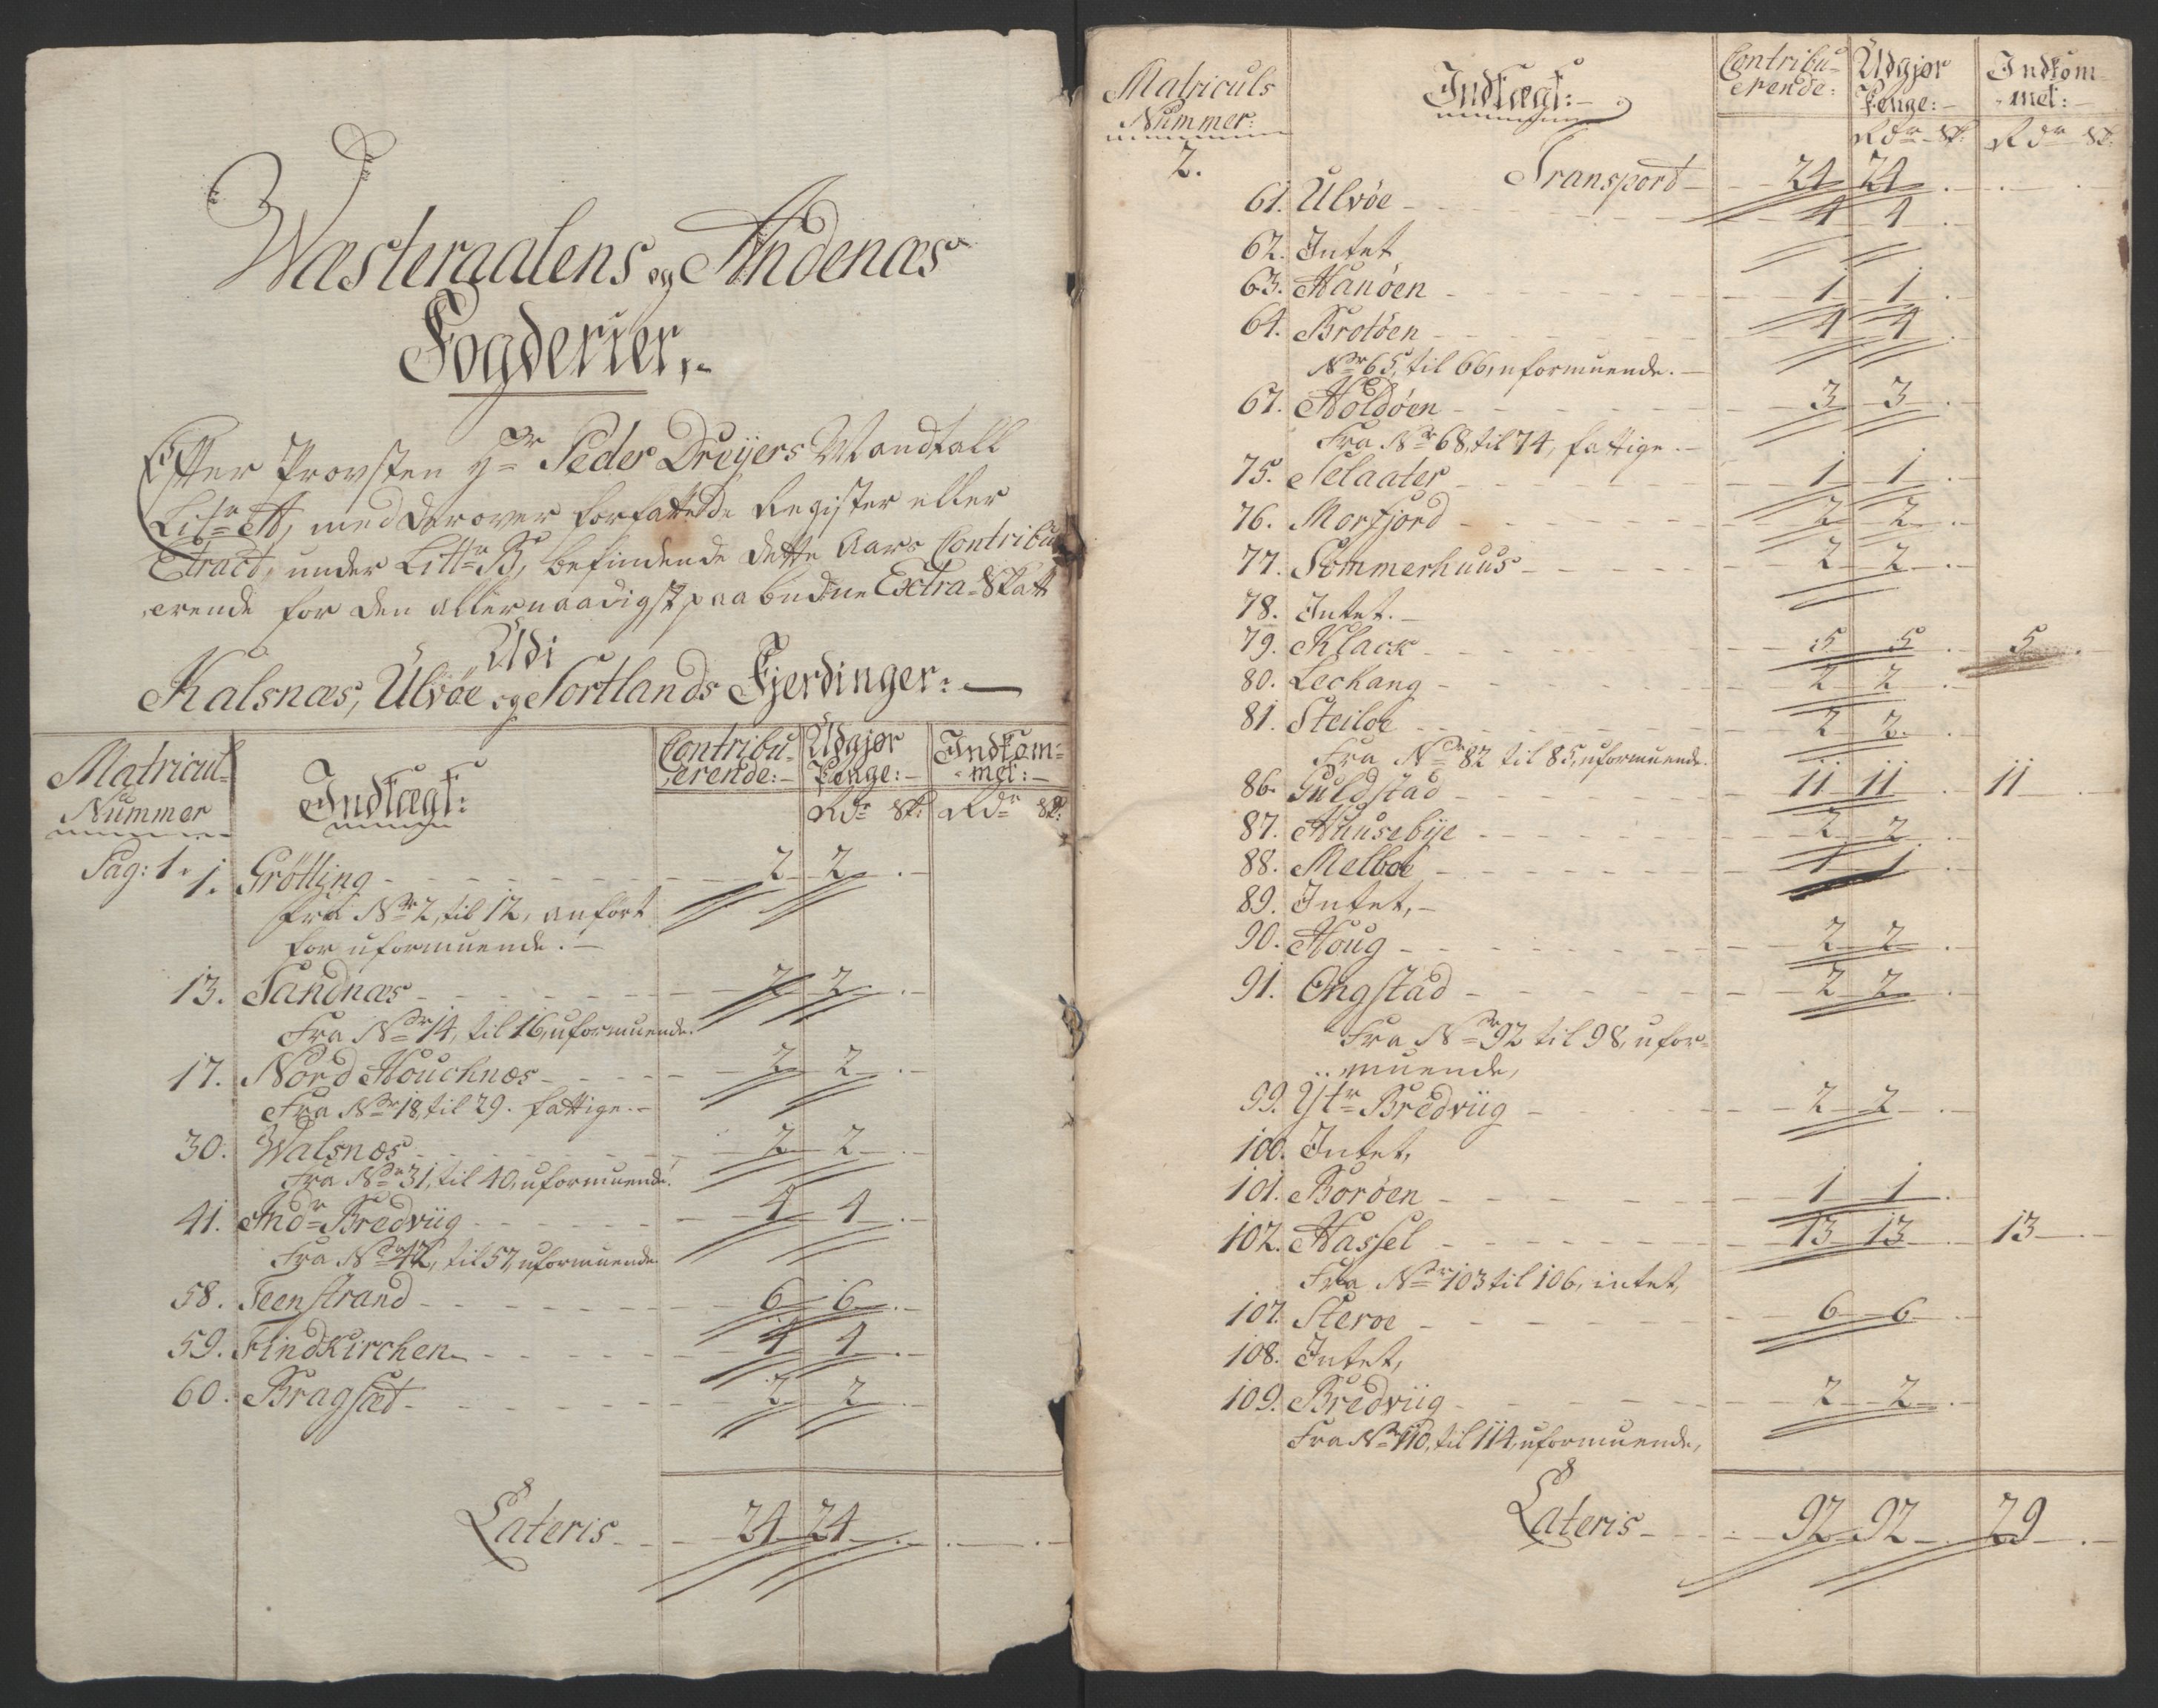 Wæsteraalens og Andenæs
Fogderier,
Efter Provsten Hr Peder Dreÿers Mandtall
Litr A, med derover forfattede Register eller
Extract, under Littr B, befindende dette Aars Contribu-
erende for den allernaadigst paabudne Extra-Skatt
Udi
Kalsnæs, Ulvöe og Sortlands Fjerdinger:
Matricul Nummer | Indtægt: | Contribu-erende: | Udgjør Penge: | Indkom-met:
Rdr s: | Rdr s:
Pag: 1.
1. Grötting - 2 - 2
Fra Nr 2, til 12, anført
for uformuende.
13. Sandnæs - 2 - 2
Fra Nr 14, til 16, uformuende.
17. Nord Houchnæs - 2 - 2
Fra Nr 18, til 29. fattige.
30. Walsnæs - 2 - 2
Fra Nr 31, til 40, uformuende.
41. Indr Bredviig - 4 - 4
Fra Nr 42, til 57, uformuende.
58. Steenstrand - 6 - 6
59. Findkirchen - 4 - 4
60. Bragsæt - 2 - 2
Lateris - 24 - 24
Matriculs Nummer: | Indtægt: | Contribu-erende: | Udgjør Penge: | Indkom-met:
Rdr s: | Rdr s:
2.
Transport - 24 - 24
61. Ulvöe - 4 - 4
62. Intet
63. Hanöen - 1 - 1
64. Brotöen - 4 - 4
Nr 65, til 66, uformuende.
67. Holdöen - 3 - 3
Fra Nr 68, til 74, fattige.
75. Selaater - 1 - 1
76. Morfjord - 2 - 2
77. Sommerhuus - 2 - 2
78. Intet.
79. Klack - 5 - 5 - 5
80. Leckang - 2 - 2
81. Steiloe - 2 - 2
Fra Nr 82 til 85, uformuende.
86. Guldstad - 11 - 11 - 11
87. Huusebÿe - 2 - 2
88. Melboe - 1 - 1
89. Intet,
90. Houg - 2 - 2
91. Ongstad - 2 - 2
Fra Nr 92 til 98, ufor-
muende,
99. Ytr Bredviig - 2 - 2
100. Intet,
101. Boröen - 1 - 1
102. Hassel - 13 - 13 - 13
Fra Nr 103 til 106, intet,
107. Steroe - 6 - 6
108. Intet,
109. Bredviig - 2 - 2
Fra Nr 110, til 114, uformuende,
Lateris - 92 - 92 - 29